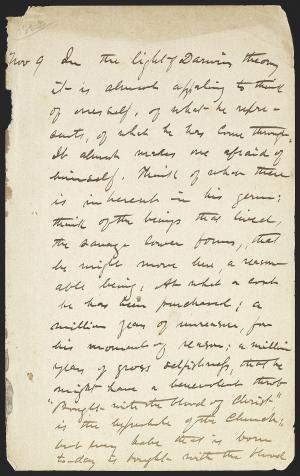 Nov 9 In the light of Darwins theory
it is almost appaling to think
of one's self, of what he repre-
sents, of what he has come through.
It almost makes one afraid of
himself. Think of what there
is inherent in his germ;
think of the beings that lived,
the savage lower forms, that
he might move here, a reason-
able being. At what a cost
he has been purchased; a
million years of unreason, for
his moment of reason; a million
years of gross selfishness, that he
might have a benevolent throb
"Bought with the blood of Christ"
is the hyperbole of the Church;
but every babe that is born
to-day is bought with the blood